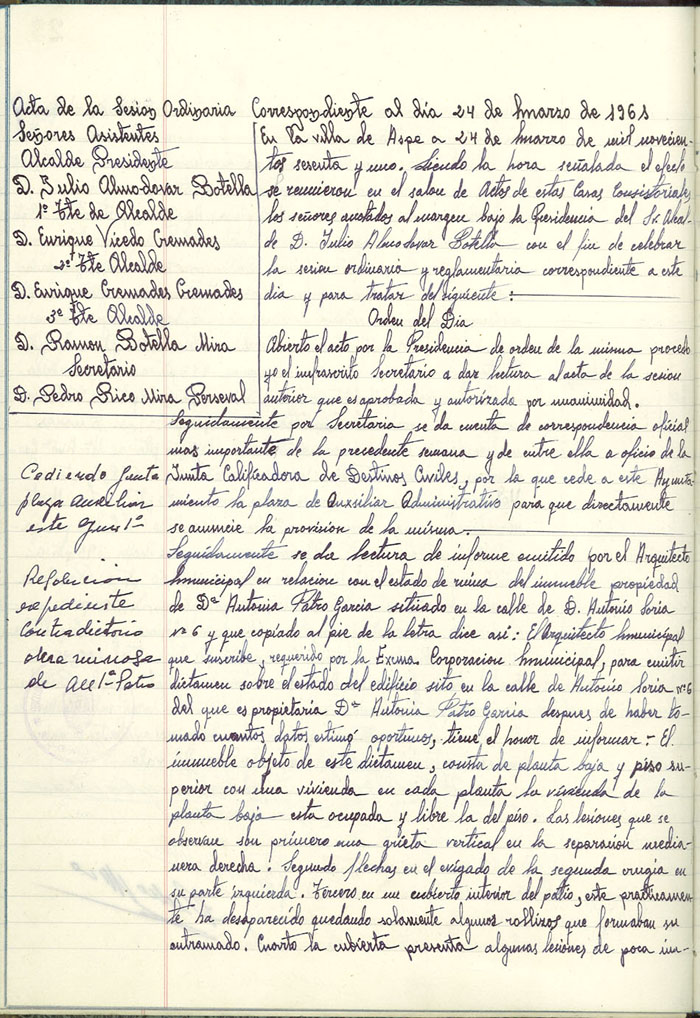 Acta de la Sesion Ordinaria Correspondiente al día 24 de marzo de 1961
Señores Asistentes
Alcalde Presidente
D. Julio Almodovar Botella
1º Tte de Alcalde
D. Enrique Vicedo Cremades
2º Tte Alcalde
D. Enrique Cremades Cremades
3º Tte Alcalde
D. Ramon Botella Mira
Secretario
D. Pedro Rico Mira Perseval
En la villa de Aspe a 24 de marzo de mil novecien-
tos sesenta y uno. Siendo la hora señalada al efecto
se reunieron en el salon de Actos de estas Casas Consistoriales
los señores anotados al margen bajo la Presidencia del Sr. Alcal-
de D. Julio Almodovar Botella con el fin de celebrar
la sesion ordinaria y reglamentaria correspondiente a este
dia y para tratar del siguiente:
Orden del Dia
Abierto el acto por la Presidencia de orden de la misma procedo
yo el infrascrito Secretario a dar lectura al acta de la sesion
anterior que es aprobada y autorizada por unanimidad.
Seguidamente por Secretaria se da cuenta de correspondencia oficial
mas importante de la precedente semana y de entre ella a oficio de la
Junta Calificadora de Destinos Civiles, por la que cede a este Ayunta-
miento la plaza de Auxiliar Administrativo para que directamente
se anuncie la provision de la misma.
Cediendo Junta
plaza auxiliar
este
Seguidamente se da lectura de informe emitido por el Arquitecto
municipal en relacion con el estado de ruina del inmueble propiedad
de Dª Antonia Patro Garcia situado en la calle de D. Antonio Soria
nº 6 y que copiado al pie de la letra dice asi: El Arquitecto municipal
que suscribe, requerido por la Excma. Corporacion municipal, para emitir
dictamen sobre el estado del edificio sito en la calle de Antonio Soria nº 6
del que es propietaria Dª Antonia Patro Garcia despues de haber to-
mado cuantos datos estimó oportunos, tiene el honor de informar:- El
inmueble objeto de este dictamen, consta de planta baja y piso su-
perior con una vivienda en cada planta la vivienda de la
planta baja esta ocupada y libre la del piso. Las lesiones que se
observan son primero una grieta vertical en la separacion media-
nera derecha. Segundo flechas en el vigado de la segunda crugia en
su parte izquierda. Tercero en un cubierto interior del patio, este practicamen-
te ha desaparecido quedando solamente algunos rollizos que formaban su
entramado. Cuarto la cubierta presenta algunas lesiones de poca im-
Resolucion
expediente
contradictorio
ruinosa
de Patro